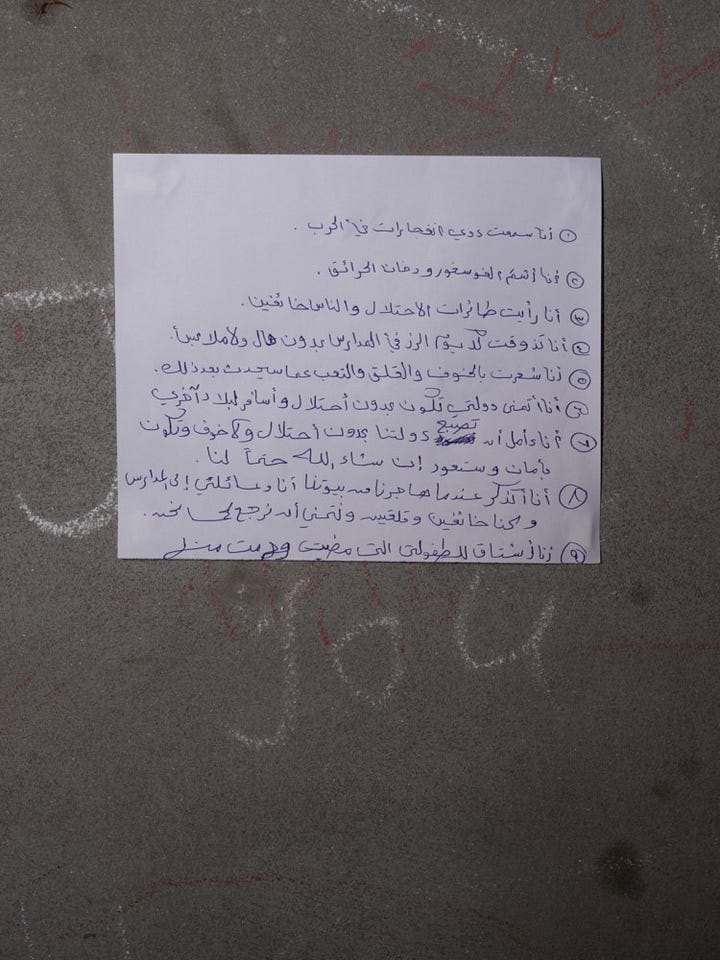 ١ أنا سمعت دوي انفجارات في الحرب .
٢ أنا أشم الفوسفور ودخان الحرائق .
٣ أنا رأيت طائرات الاحتلال والناس خائفين .
٤ أنا تذوقت كل يوم الرز في المدارس بدون مال ولا ملابس .
٥ أنا شعرت بالخوف والقلق والتعب عما سيحدث بعد ذلك .
٦ أنا أتمنى دولتي تكون بدون أحتلال وأسافر لبلاد آخرى
٧ أنا أأمل أن تصبح دولتنا بدون أحتلال ولا خوف وتكون
بأمان وستعود إن شاء الله حتماً لنا .
٨ أنا أتذكر عندما هاجرنا من بيوتنا أنا وعائلتي إلى المدارس
وكنا خائفين وقلقين ونتمنى أن نرجع لما نحن .
٩ أنا أشتاق للطفولتي التي مضيت
you